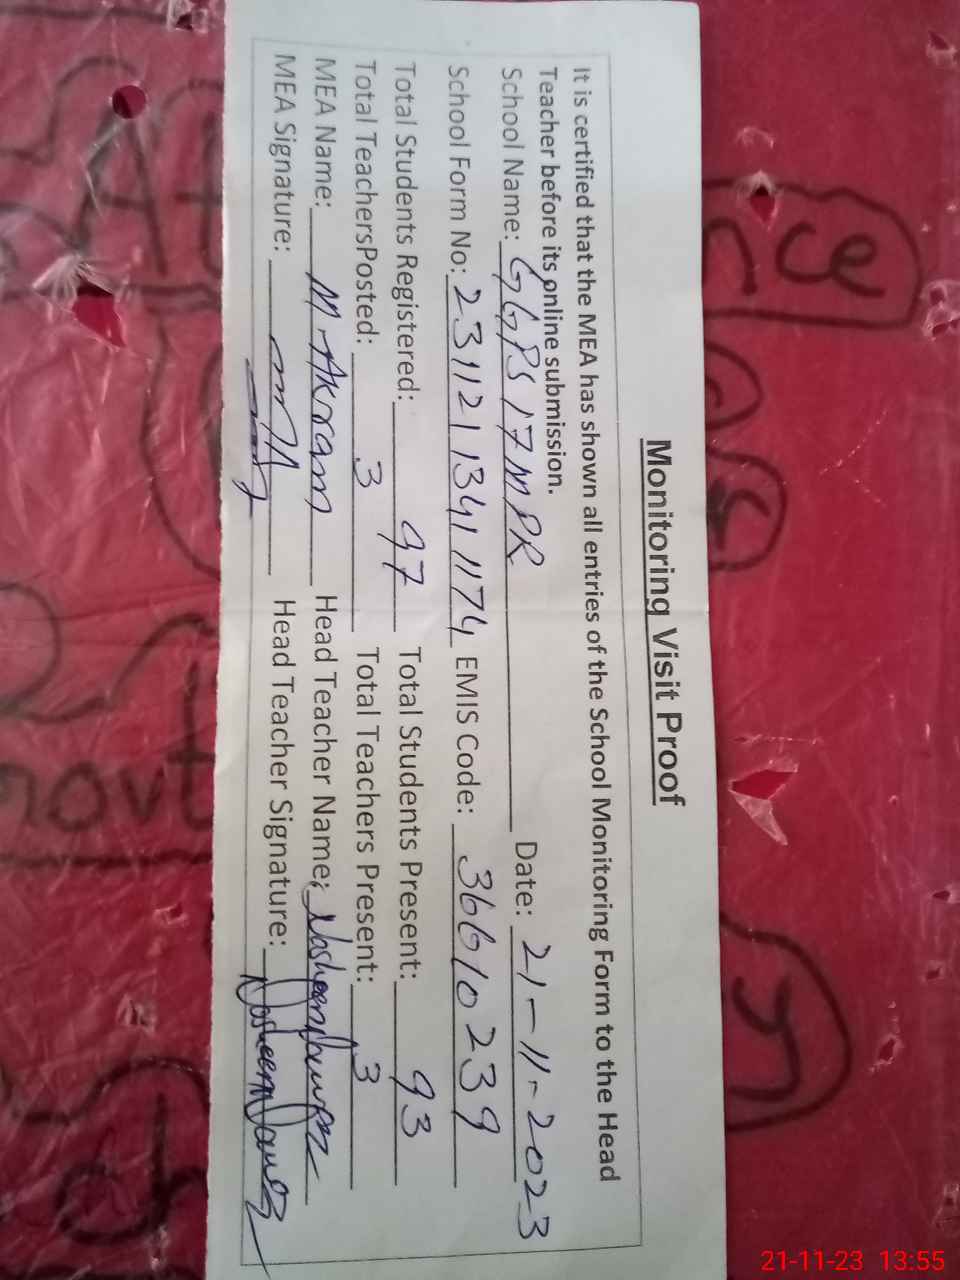 Monitoring Visit Proof
It is certified that the MEA has shown all entries of the School Monitoring Form to the Head
Teacher before its online submission.
School Name: GGPS 17 MPR Date: 21-11-2023
School Form No: 231121 1341174 EMIS Code: 36610239
Total Students Registered: 97 Total Students Present: 93
Total TeachersPosted: 3 Total Teachers Present: 3
MEA Name: M. Akram Head Teacher Name: Nosheen
MEA Signature: Head Teacher Signature: Nosheen
21-11-23 13:55